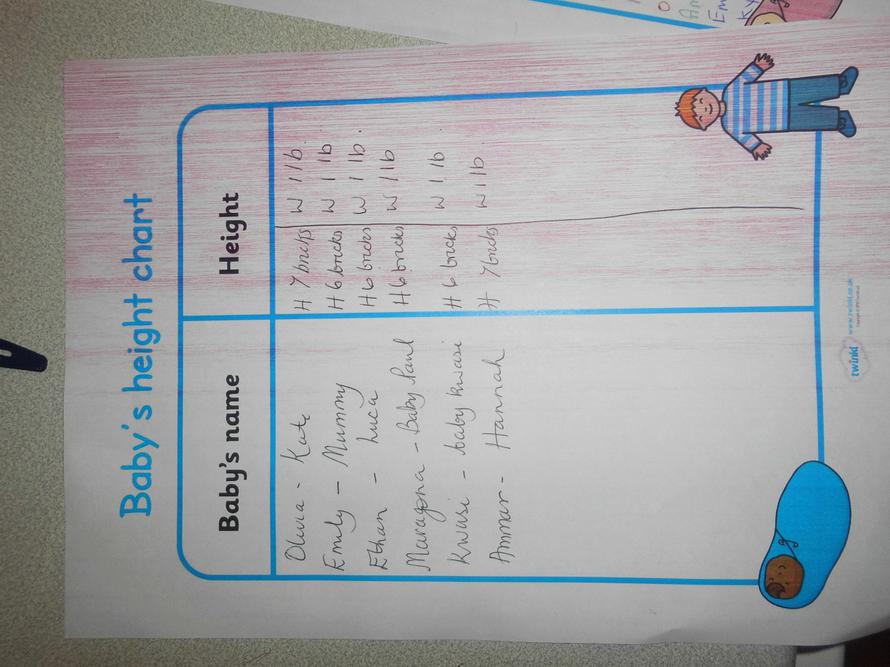 Baby's height chart
Baby's name Height
Olivia - Kate H 7 bricks W 1 lb.
Emily - Mummy H 6 bricks W 1 lb
Ethan - Luca H 6 bricks W 1 lb.
- Baby Paul H 6 bricks W 1 lb
Kwasi - baby Kwasi H 6 bricks W 1 lb
Ammar - Hannah H 7 bricks W 1 lb
twinkl www.twinkl.co.uk